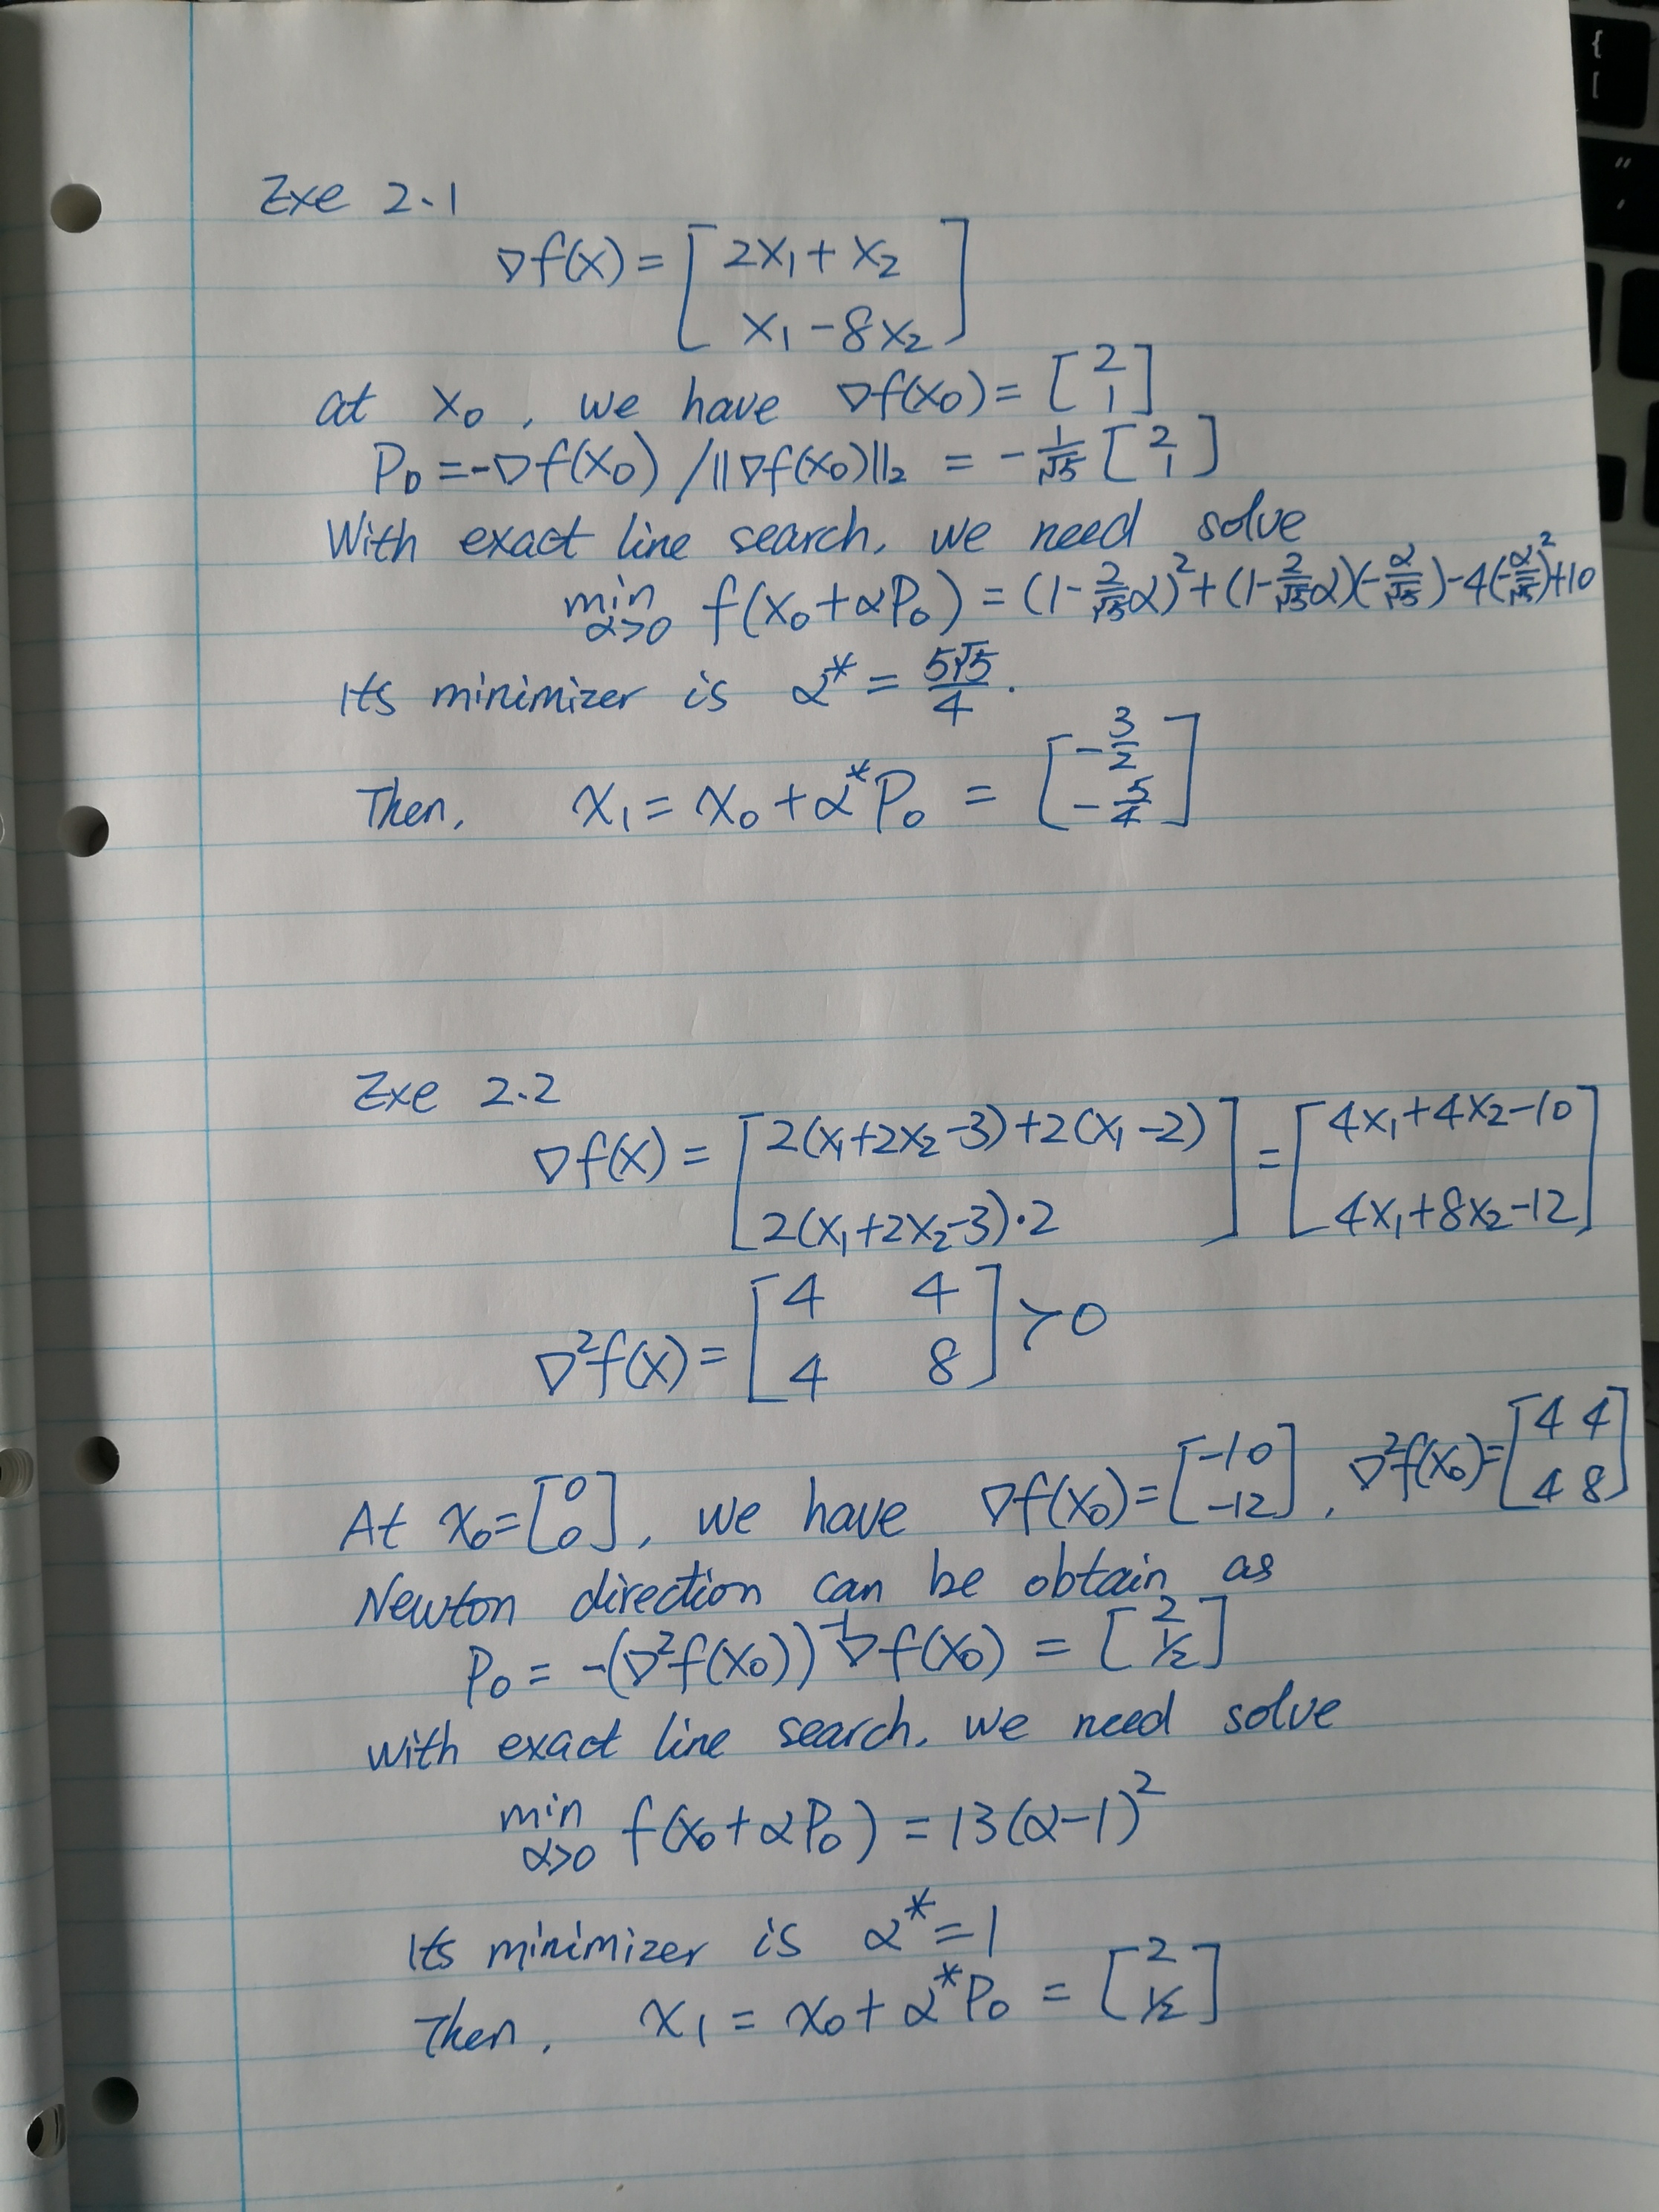 Exe 2.1
∇f(x) = [ 2x₁ + x₂
x₁ - 8x₂ ]
at x₀, we have ∇f(x₀) = [ 2 1 ]
P₀ = -∇f(x₀) / ||∇f(x₀)||₂ = - 1/√5 [ 2 1 ]
With exact line search, we need solve
min α>0 f(x₀+αP₀) = (1-2/√5 α)² + (1-2/√5 α)(-α/√5) - 4(-α/√5)² + 10
Its minimizer is α* = 5√5/4.
Then, x₁ = x₀ + α*P₀ = [ -3/2 -5/4 ]
Exe 2.2
∇f(x) = [ 2(x₁+2x₂-3)+2(x₁-2) 2(x₁+2x₂-3)·2 ] = [ 4x₁+4x₂-10 4x₁+8x₂-12 ]
∇²f(x) = [ 4 4 4 8 ] ≻ 0
At x₀ = [ 0 0 ], we have ∇f(x₀) = [ -10 -12 ], ∇²f(x₀) = [ 4 4 4 8 ]
Newton direction can be obtain as
P₀ = -(∇²f(x₀))⁻¹∇f(x₀) = [ 2 1/2 ]
with exact line search, we need solve
min α>0 f(x₀+αP₀) = 13(α-1)²
Its minimizer is α* = 1
Then, x₁ = x₀ + α*P₀ = [ 2 1/2 ]
{
[
"
'